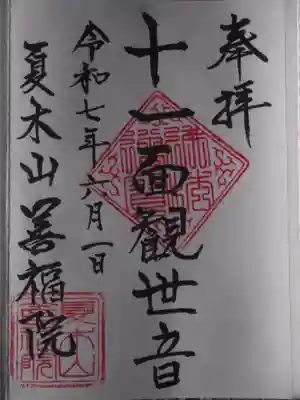 奉拝
十一面観世音
令和七年六月一日
夏木山善福院